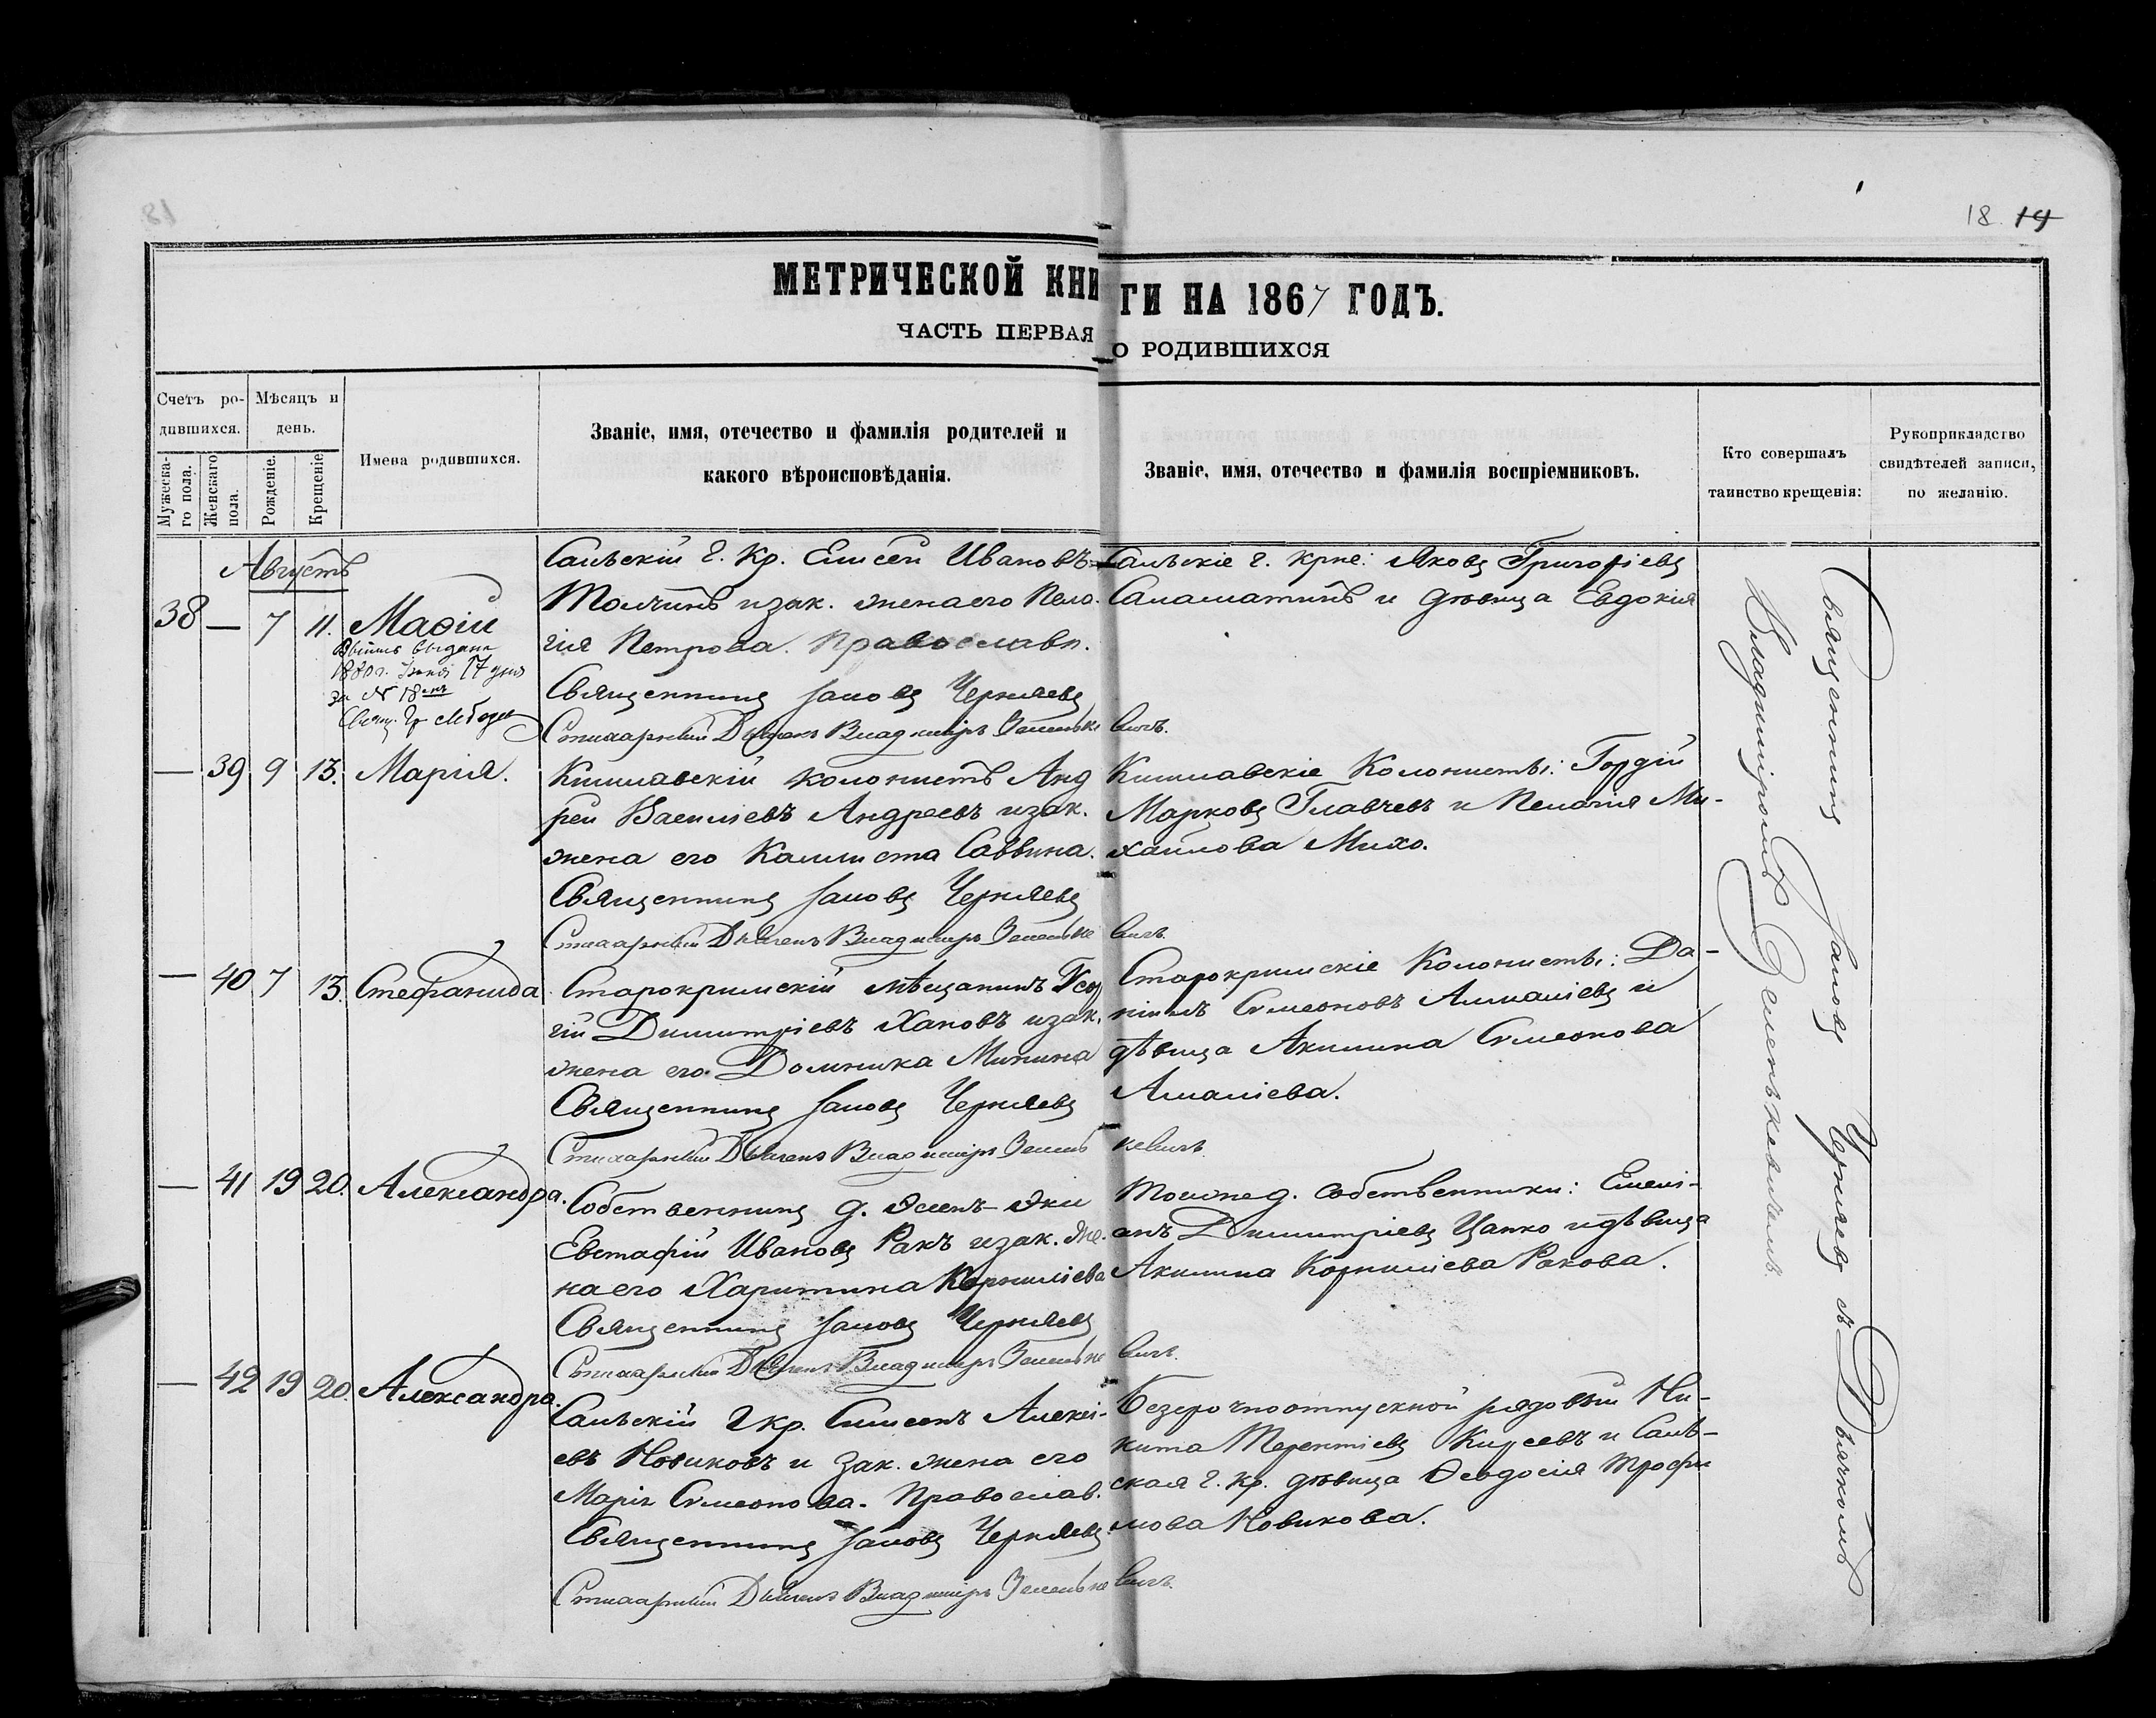 18
18. 19
МЕТРИЧЕСКОЙ КНИГИ НА 1867 ГОДЪ.
ЧАСТЬ ПЕРВАЯ О РОДИВШИХСЯ
Счетъ ро-
дившихся.
Мужеска-
го пола.
Женскаго
пола.
Мѣсяцъ и
день.
Рожденіе.
Крещеніе.
Имена родившихся.
Званіе, имя, отечество и фамилія родителей и
какого вѣроисповѣданія.
Званіе, имя, отечество и фамилія воспріемниковъ.
Кто совершалъ
таинство крещенія:
Рукоприкладство
свидѣтелей записи,
по желанію.
Августъ
38 — 7 11.
выдана
1880 г. 17 дня
за № 18
Свящ. Гр.
Салъскій г. Кр. Елисей Ивановъ
Толчинъ и зак. жена его Пела-
гія Петрова. Православн.
Священникъ Іаковъ Черняевъ
Стихарный Дьячекъ Владиміръ Зеленькевичъ.
Салъскіе г. крне: Яковъ Григоріевъ
Саламатинъ и дѣвица Евдокія
— 39 9 13. Марія.
Кишлавскій колонистъ Анд
рей Васильевъ Андреевъ и зак.
жена его Каллиста Саввина.
Священникъ Іаковъ Черняевъ
Стихарный Дьячекъ Владиміръ Зеленькевичъ.
Кишлавскіе Колонисты: Гордій
Марковъ Главчевъ и Пелагія Ми-
хайлова Михо.
— 40 7 13. Стефанида
Старокримскій мѣщанинъ Геор
гій Димитріевъ Хаповъ и зак.
жена его Домника Минина
Священникъ Іаковъ Черняевъ
Стихарный Дьячекъ Владиміръ Зеленькевичъ.
Старокримскіе Колонисты: Да-
ніилъ Симеоновъ Алмаліевъ и
дѣвица Акилина Симеонова
Амаліева.
— 41 19 20. Александра.
Собственникъ д. Эски
Евстафій Ивановъ Ракъ и зак. же-
на его Харитина Корниліева
Священникъ Іаковъ Черняевъ
Стихарный Дьячекъ Владиміръ Зеленькевичъ.
Той же д. собственники: Емелі-
анъ Димитріевъ Цапко и дѣвица
Акилина Корниліева Ракова.
— 42 19 20. Александра.
Салъскій г кр. Симеонъ Алексі-
евъ Новиковъ и зак. жена его
Марія Симеонова. Православ.
Священникъ Іаковъ Черняевъ
Стихарный Дьячекъ Владиміръ Зеленькевичъ.
Безсрочноотпускной рядовый Ни-
кита Терентіевъ Кирсевъ и Салъ-
ская г. кр. дѣвица Ѳеодосія Трофи
мова Новикова.
Священникъ Іаковъ Черняевъ съ Дьячкомъ
Владиміромъ Зеленькевичемъ.